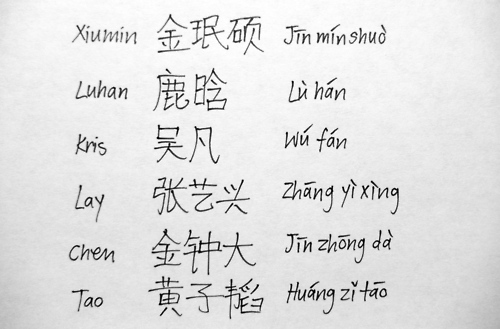 Xiumin 金珉硕 Jīn mín shuò
Luhan 鹿晗 Lù hán
Kris 吴凡 Wú fán
Lay 张艺兴 Zhāng yì xìng
Chen 金钟大 Jīn zhōng dà
Tao 黄子韬 Huáng zǐ tāo